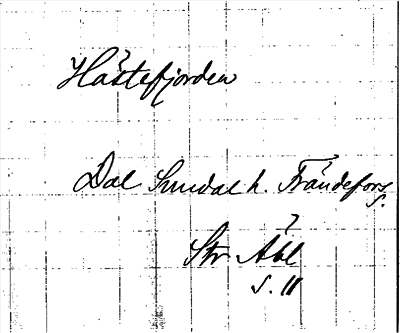 Hästefjorden
Dal Sundal h. Frändefors
s.
Str Åbl
s. 11